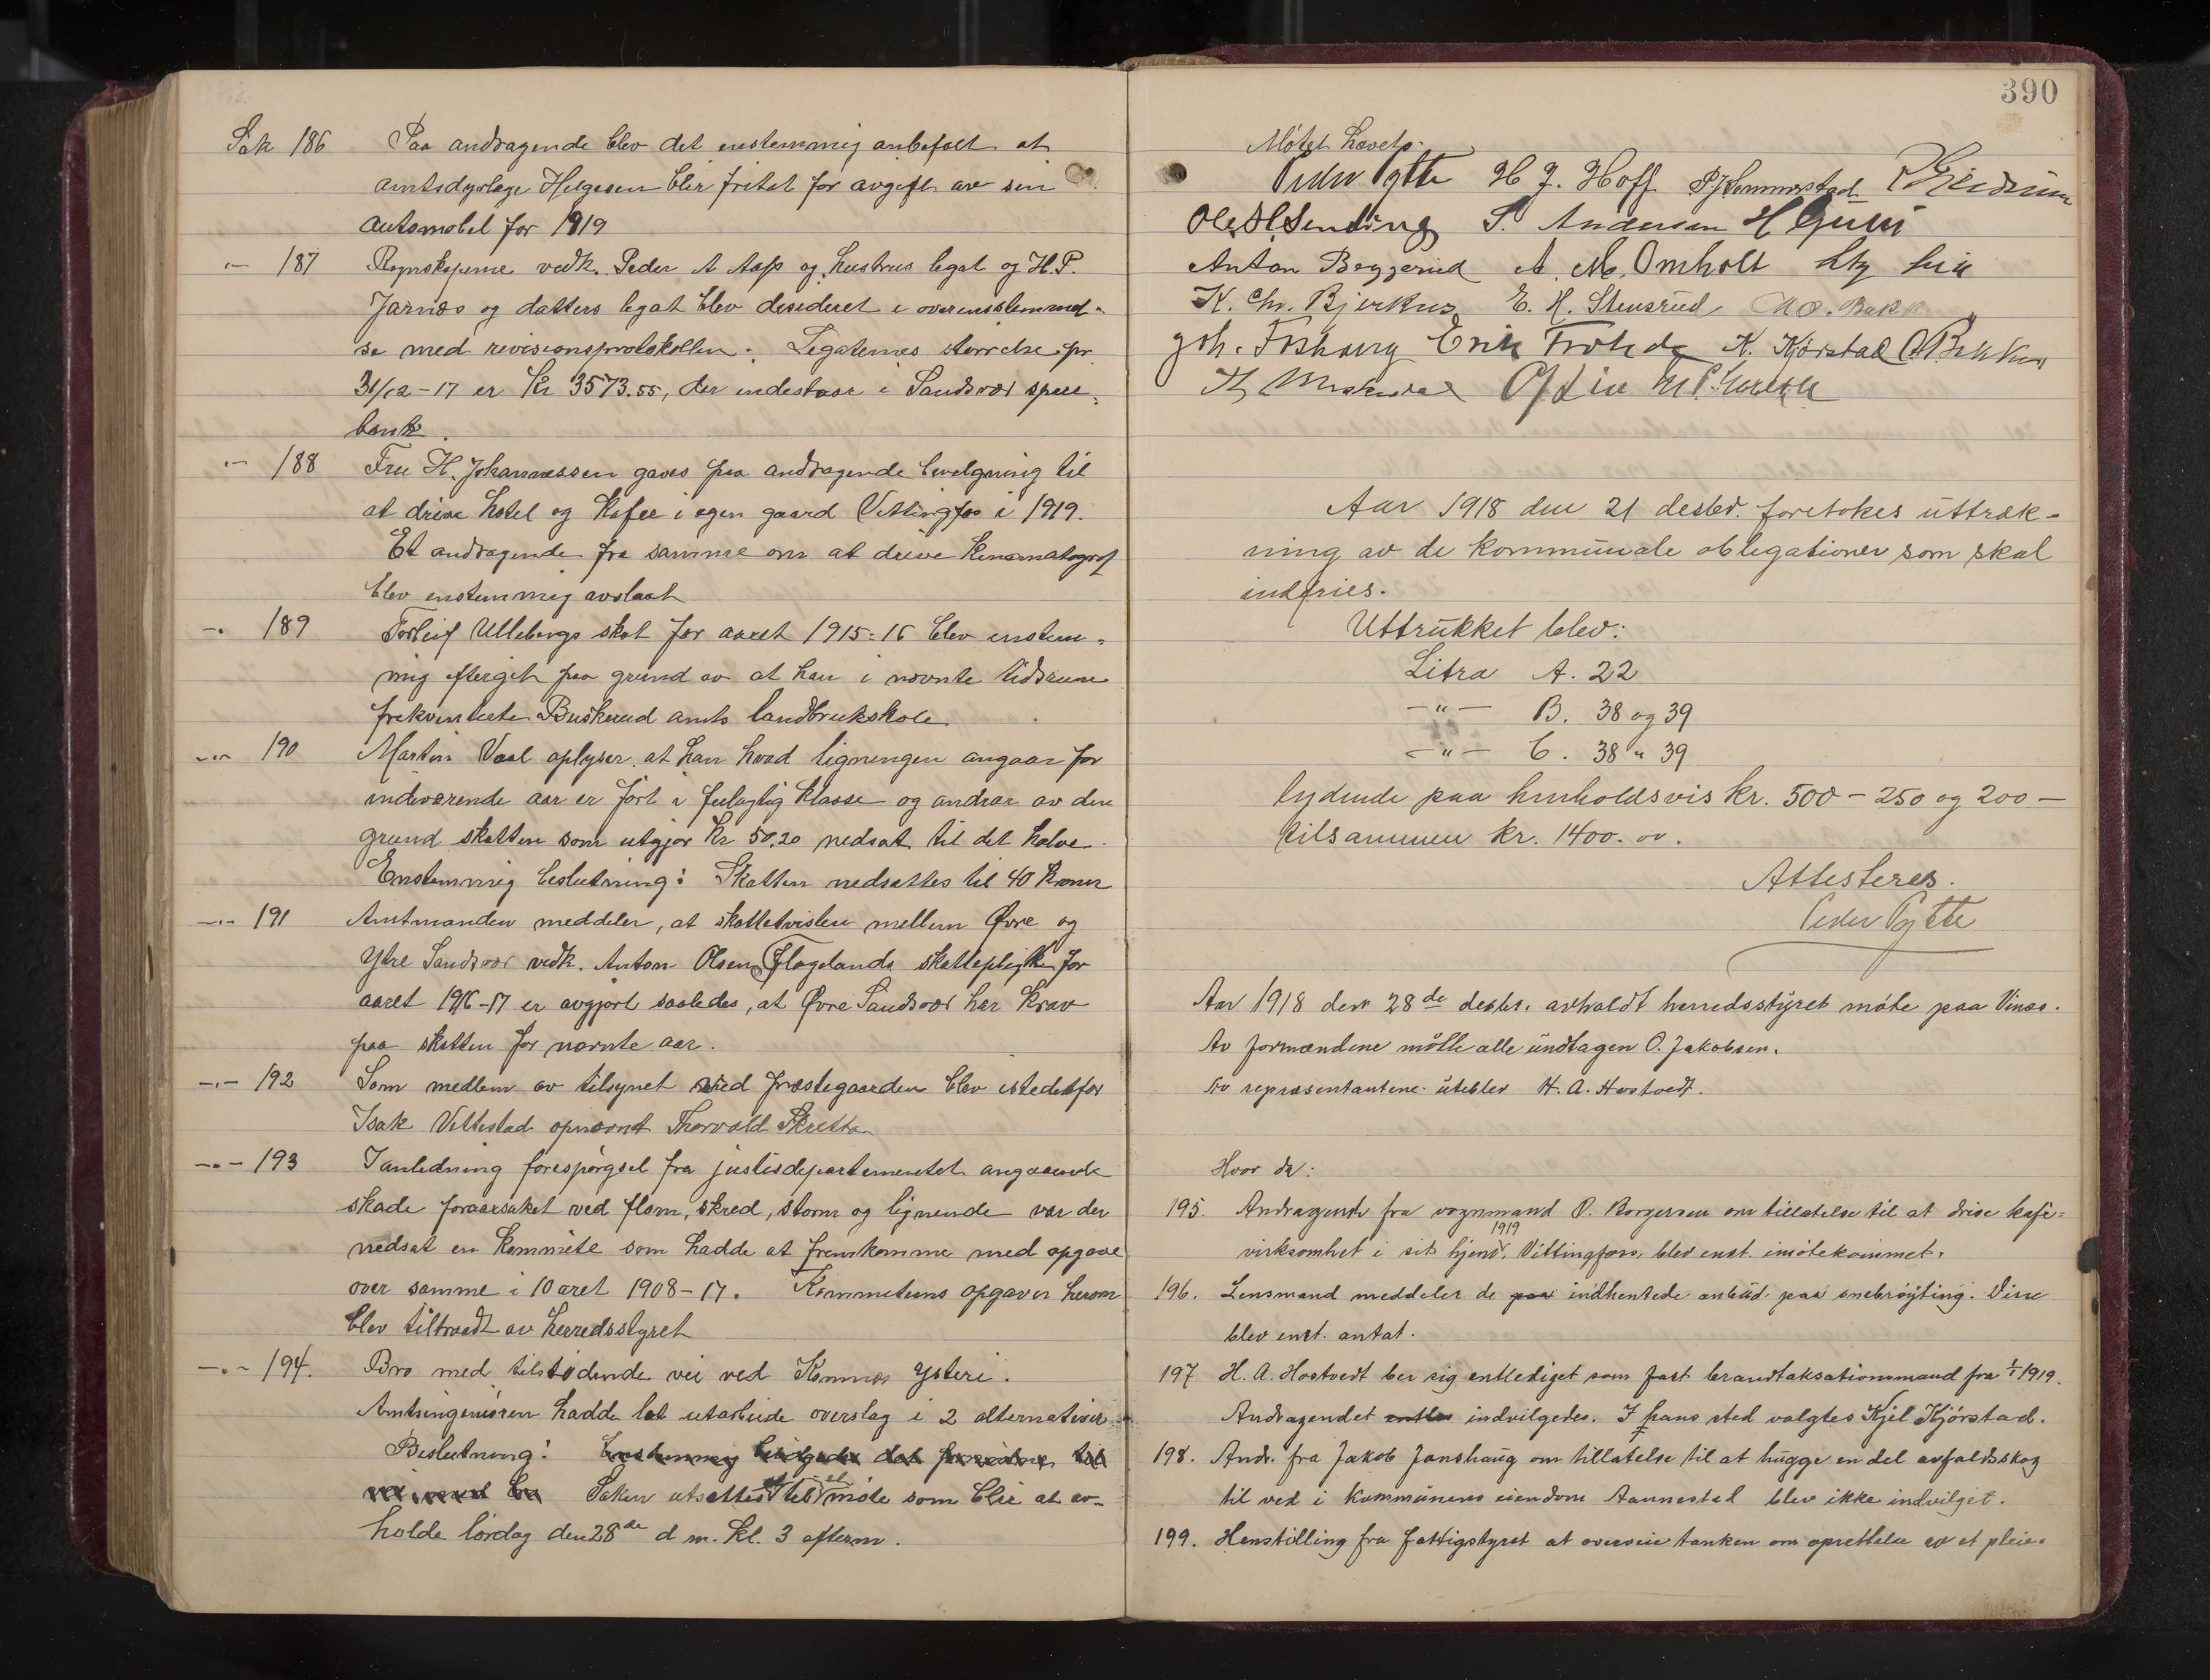 Sak 186 Paa andragende blev det enstemmig anbefalt at
amtsdyrlæge Helgesen blir fritat for avgift av sin
automobil for 1919
" 187 Regnskaperne vedk. Peder A Aas og hustrus legat og H.P.
Jarnæs og datters legat blev desideret i overensstemmel-
se med revisionsprotokollen. Legaternes størrelse pr
31/12-17 er Kr 3573.55, der indestaar i Sandsvær spare-
bank.
" 188 Fru H. Johannessen gaves paa andragende bevilgning til
at drive hotel og kafee i egen gaard Vittingfos i 1919.
Et andragende fra samme om at drive kinematograf
blev enstemmig avslaat
" 189 Torleif Ullebergs skat for aaret 1915-16 blev enstem-
mig eftergit paa grund av at han i nævnte tidsrum
frekventerte Buskerud amts landbrukskole.
" 190 Martin Vaal oplyser at han hvad ligningen angaar for
indeværende aar er ført i feilagtig klasse og andrar av den
grund skatten som utgjør kr 50.20 nedsat til det halve.
Enstemmig beslutning: Skatten nedsættes til 40 kroner
" 191 Amtmanden meddeler, at skattetvisten mellem Øvre og
Ytre Sandsvær vedk. Anton Olsen Flagelands skattepligt for
aaret 1916-17 er avgjort saaledes, at Øvre Sandsvær har krav
paa skatten for nævnte aar.
" 192 Som medlem av tilsynet med præstegaarden blev istedetfor
Isak Vittestad opnævnt Thorvald Skutta
" 193 I anledning forespørgsel fra justisdepartementet angaaende
skade foraarsaket ved flom, skred, storm og lignende var der
nedsat en kommite som hadde at fremkomme med opgave
over samme i 10 aret 1908-17. Kommiteens opgaver herom
blev tiltraadt av herredsstyret
" 194. Bro med tilstødende vei ved Komnæs ysteri.
Amtsingeniøren hadde lat utarbeide overslag i 2 alternativer
Beslutning: Enstemmig
Saken utsættes til møte som blir at av-
holde lørdag den 28de d m. kl. 3 efterm.
390
Møtet hævet.
Peder Pytte H. J. Hoff
Ole H Sending S. Andersen
Anton Beggerud A. M. Omholt
K. Chr. Bjerknes E. H. Stensrud
Joh. Foshaug K. Kjørstad
Aar 1918 den 21 desbr. foretokes uttræk-
ning av de kommunale obligationer som skal
indfries.
Uttrukket blev:
Litra A. 22
—"— B. 38 og 39
—"— C. 38 " 39
lydende paa henholdsvis kr. 500 - 250 og 200 —
tilsammen kr. 1400.00.
Attesteres.
Peder Pytte
Aar 1918 den 28de desbr. avholdt herredsstyret møte paa Vinæs.
Av formændene møtte alle undtagen O. Jakobsen.
Av repræsentantene uteblev H. A. Hostvedt.
Hvor da:
195. Andragende fra vognmand P. Borgersen om tillatelse til at drive kafe-
virksomhet i sit hjem 1919, Vittingfoss, blev enst. imøtekommet.
196. Lensmand meddeler de paa indhentede anbud paa snebrøyting. Disse
blev enst. antat.
197 H. A. Hostvedt ber sig entlediget som fast brandtaksationsmand fra 1/1 1919.
Andragendet entles indvilgedes. I hans sted valgtes Kjel Kjørstad.
198. Andr. fra Jakob Janshaug om tillatelse til at hugge en del avfaldsskog
til ved i kommunens eiendom Aannestad blev ikke indvilget.
199. Henstilling fra fattigstyret at overveie tanken om oprettelse av et pleie-